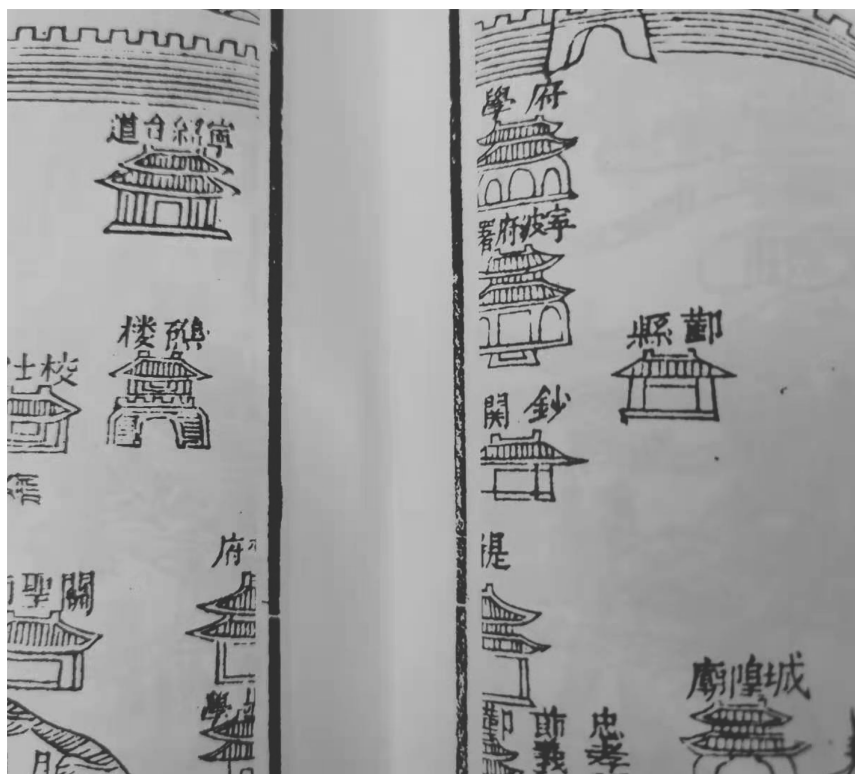 府學
寧波府署
鄞縣
鈔關
提
城隍廟
忠孝
節義
寧紹台道
譙楼
校士
府
關聖
學
月